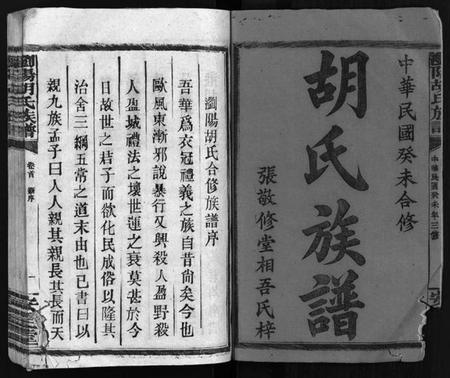 瀏陽胡氏族譜
中華民國癸未年三修
中華民國癸未合修
胡氏族譜
張敬修堂相吾氏梓
瀏陽胡氏合修族譜序
吾華爲衣冠禮義之族自昔尚矣今也
歐風東漸邪說暴行又興殺人盈野殺
人盈城禮法之壞世運之衰莫甚於今
日故世之精子而欲化民成俗以隆其
治舍三綱五常之道末由也已書曰以
親九族孟子曰人人親其親長其長而天
瀏陽胡氏族譜
卷首 新序
一